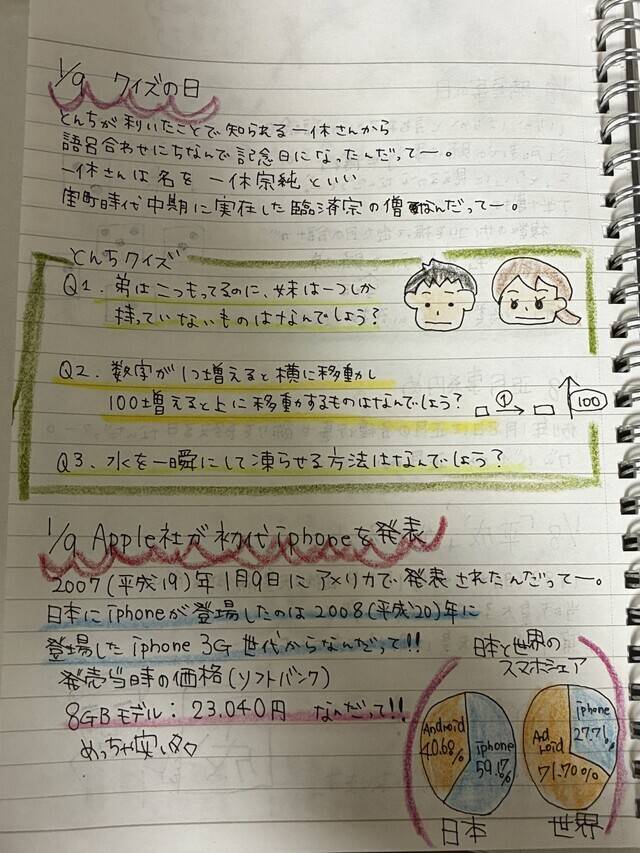 1/9 クイズの日
とんちが利いたことで知られる一休さんから
語呂合わせにちなんで記念日になったんだってー。
一休さんは名を 一休宗純といい
室町時代中期に実在した臨済宗の僧なんだってー。
とんちクイズ
Q1. 弟は二つもってるのに、妹は一つしか
持っていないものはなんでしょう?
Q2. 数字が1つ増えると横に移動し
100増えると上に移動するものはなんでしょう?
① 100
Q3. 水を一瞬にして凍らせる方法はなんでしょう?
1/9 Apple社が初代iphoneを発表
2007(平成19)年1月9日にアメリカで発表されたんだってー。
日本にiphoneが登場したのは2008(平成20)年に
登場したiphone 3G世代からなんだって!!
発売当時の価格(ソフトバンク)
8GBモデル: 23.040円 なんだって!!
めっちゃ安い
日本と世界の
スマホシェア
Android
40.68%
iphone
59.17%
日本
iphone
27.71%
Android
71.70%
世界